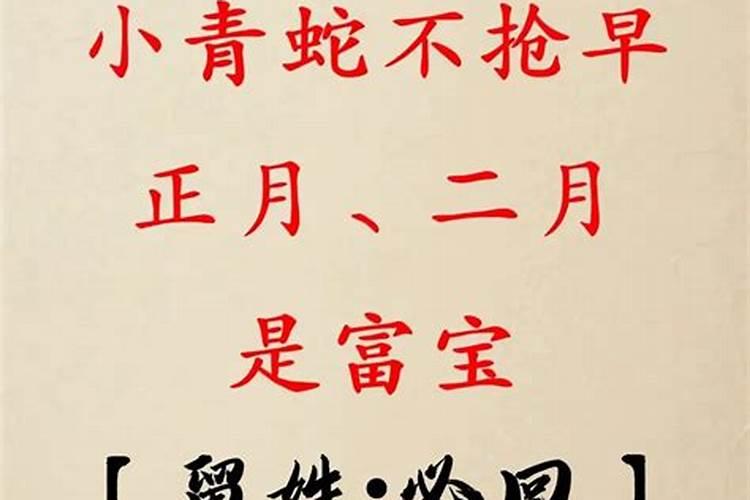 小青蛇不抢早
正月、二月
是富宝
【留姓·必回】